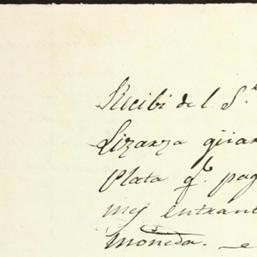 Recibi del S.r
Lizarza quar
Plata q.e pag
mes entrant
moneda. e